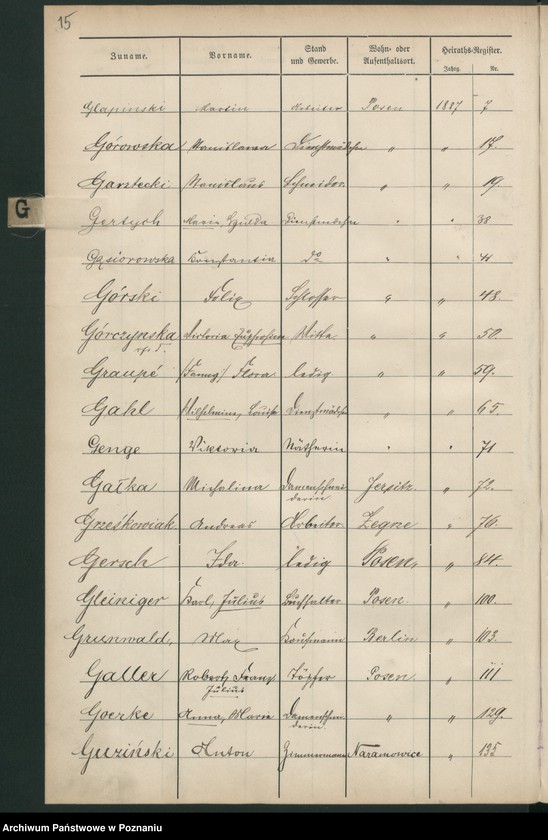 15
Zuname. Vorname. Stand und Gewerbe. Wohn- oder Aufenthaltsort. Heiraths-Register.
Jahrg. Nr.
Glapinski Martin Arbeiter Posen 1887 7
Górowska Stanislawa Dienstmädchen " " 17.
Garztecki Stanislaus Schneider " " 19
G
Gertych Maria, Dienstmädchen " " 38
Gąsiorowska Constantia do " " 41
Górski Felix Schlosser " " 48.
Górczynska Victoria Wittwe " " 50.
Graupé (Fanny) Flora ledig " " 59.
Gahl Wilhelmine, Louise Dienstmädchen " " 65.
Genge Viktoria Nätherin " " 71
Gałka Michalina Damenschneiderin Jersitz " 72.
Grześkowiak Andreas Arbeiter Zegrze " 76.
Gersch Ida ledig Posen, " 84.
Gleiniger Karl, Julius Buchhalter Posen " 100.
Grunwald, Max Kaufmann Berlin " 103.
Galler Robert, Franz Julius Töpfer Posen " 111
Goerke Anna, Marie Damenschneiderin " " 129.
Guziński Anton Zimmermann Naramowice " 135
Archiwum Państwowe w Poznaniu